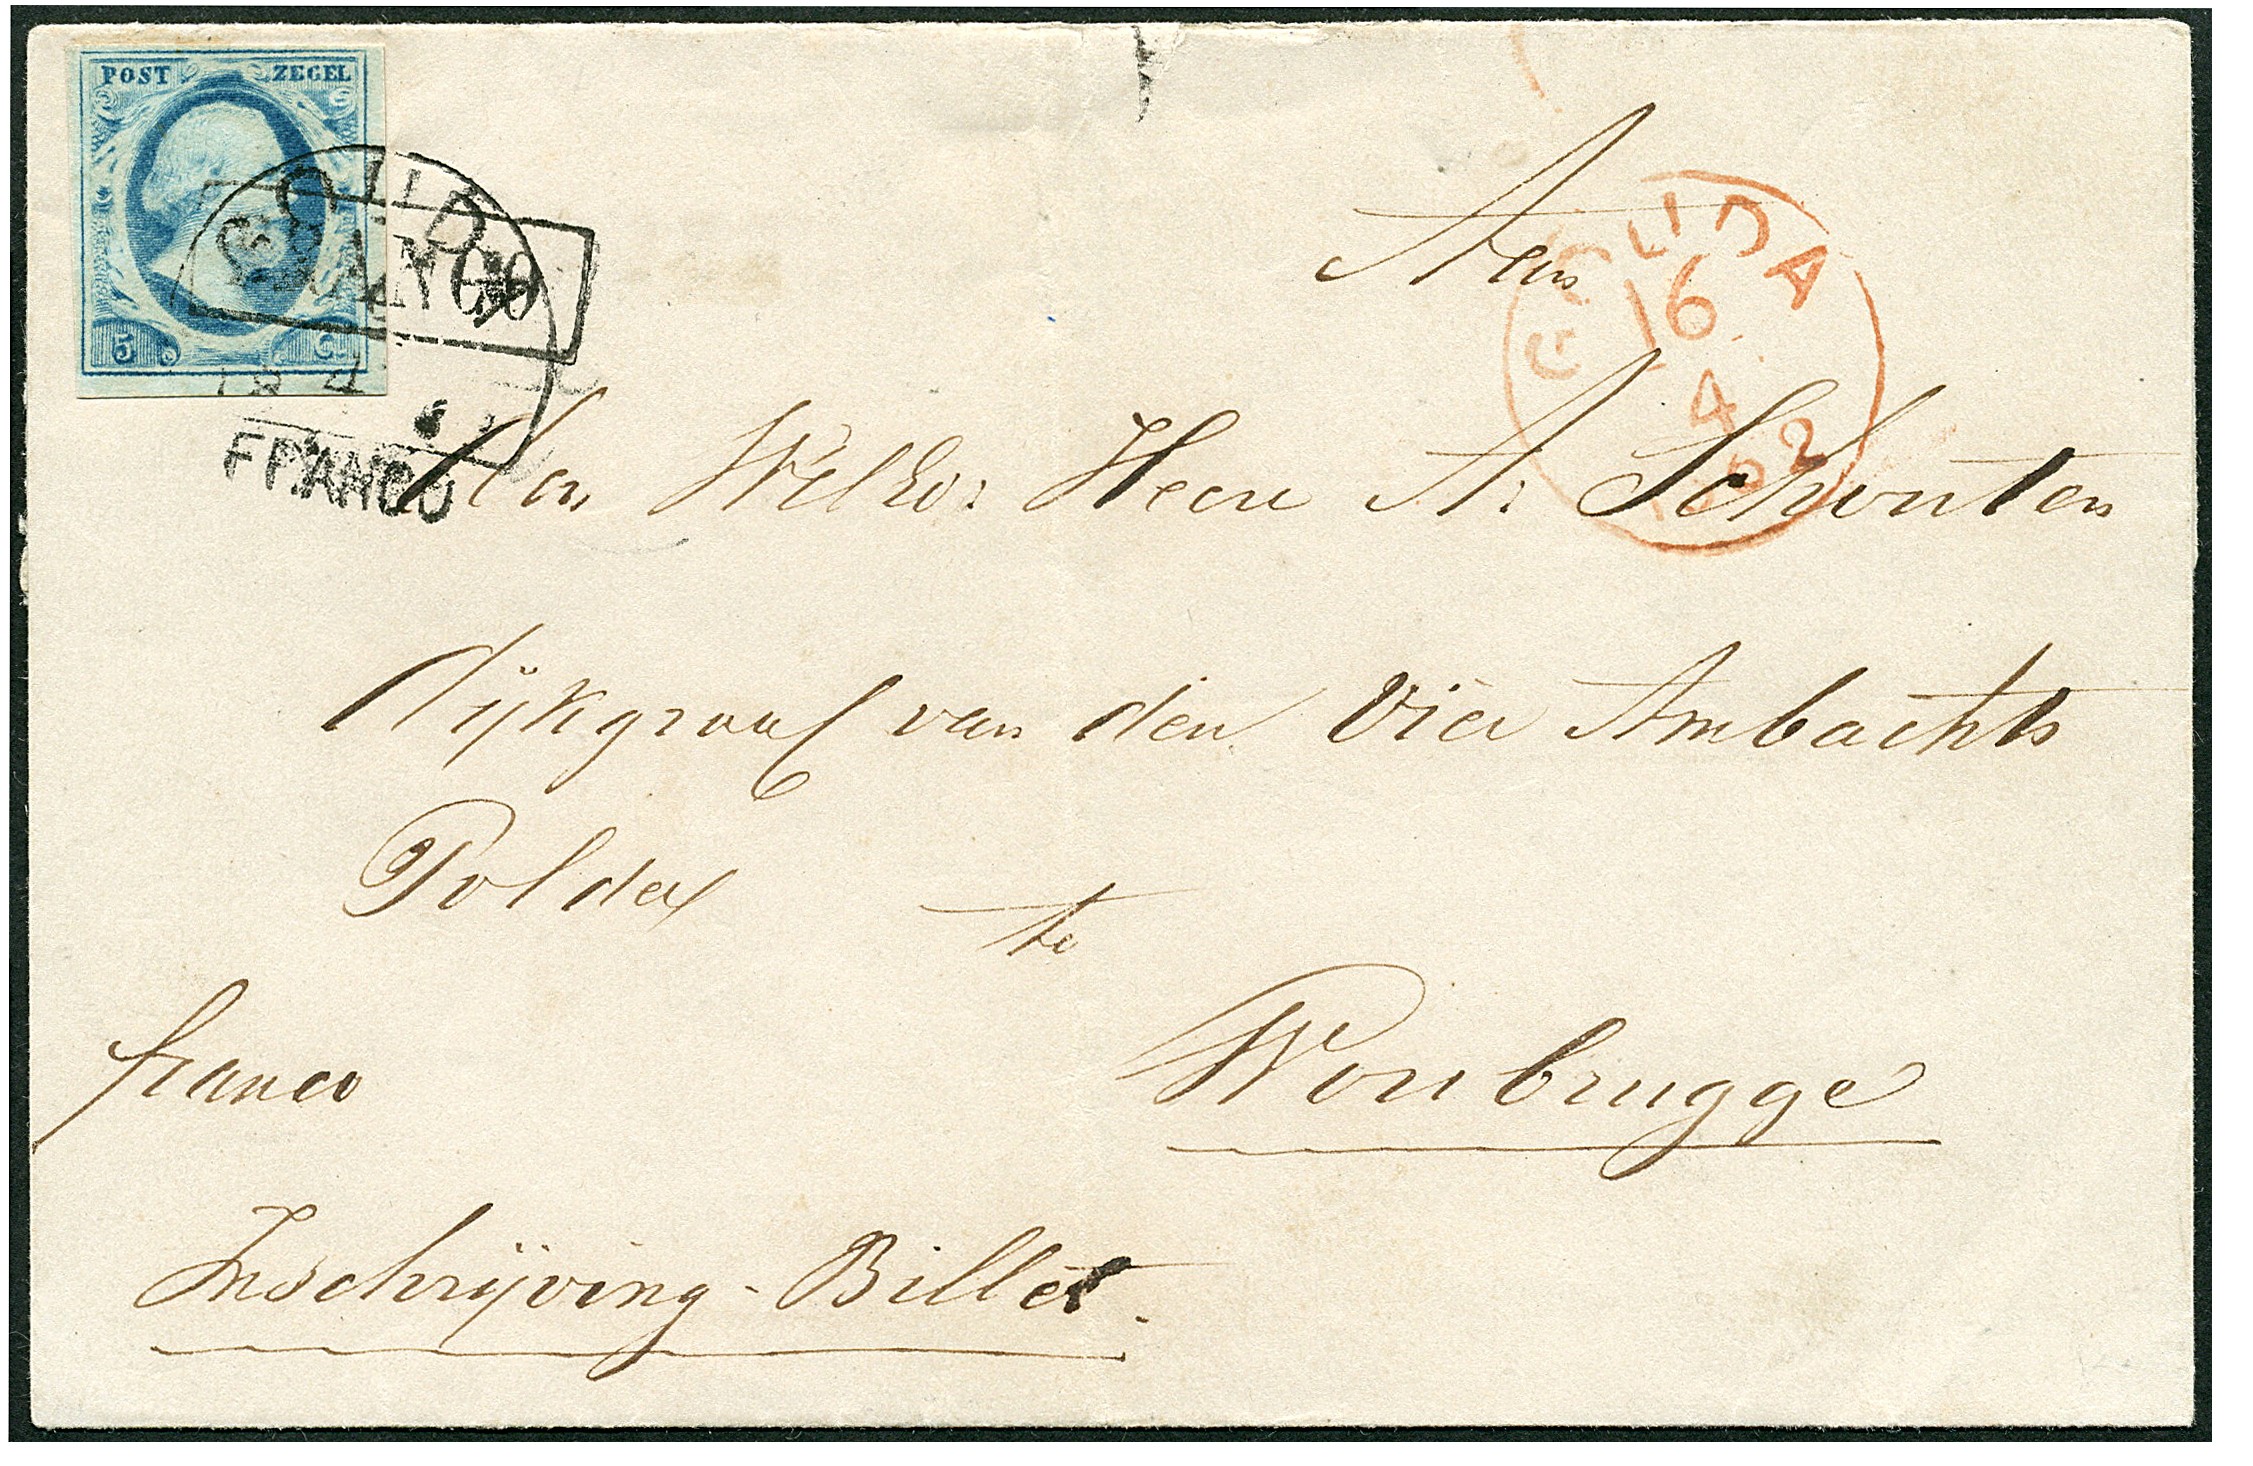 POST ZEGEL
5 C.
FRANCO
FRANCO
GOUDA
16
4
62
Aan
den WelEd: Heere A: Schouten
dijkgraaf van den Vier Ambachts
Polder te
Woubrugge
franco
Inschrijving-Billet.